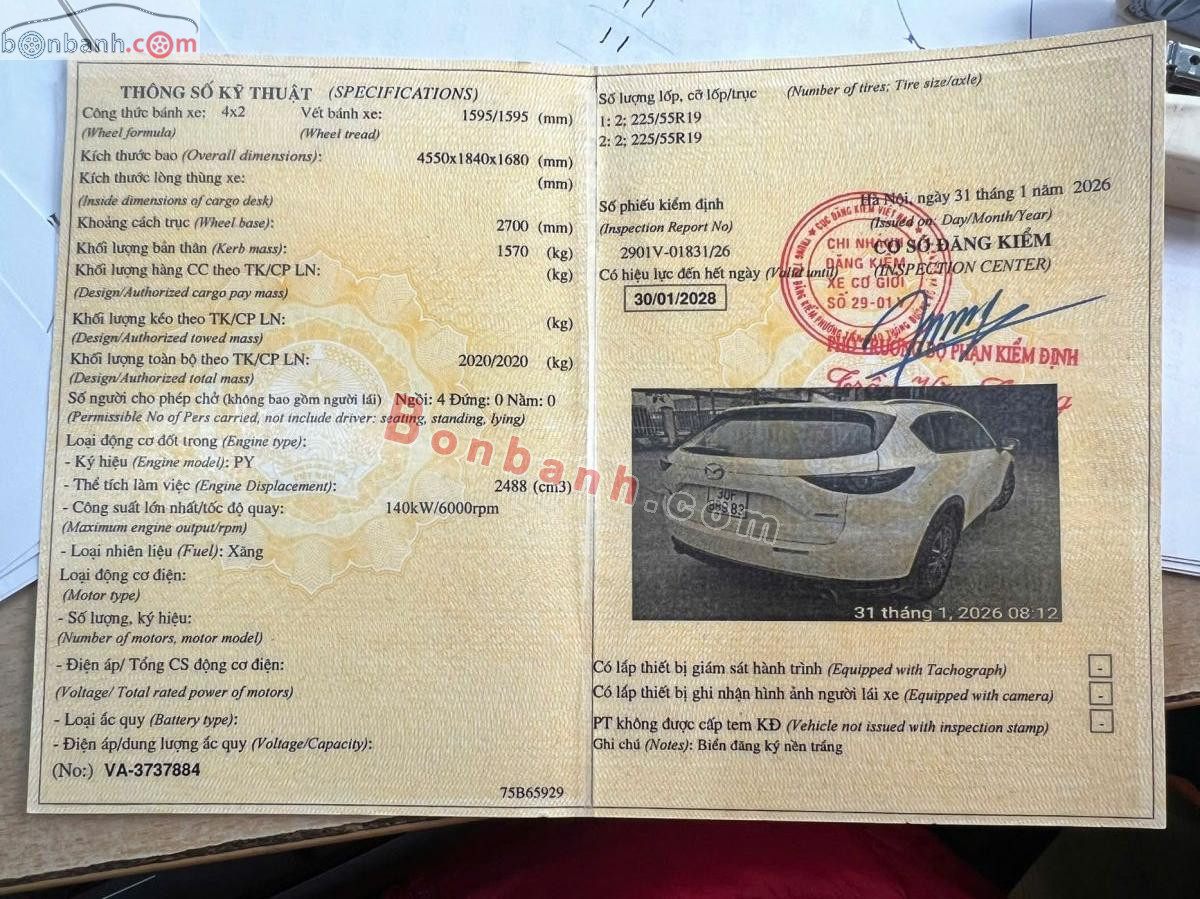 bonbanh.com
THÔNG SỐ KỸ THUẬT (SPECIFICATIONS)
Công thức bánh xe: 4x2 Vết bánh xe: 1595/1595 (mm)
(Wheel formula) (Wheel tread)
Kích thước bao (Overall dimensions): 4550x1840x1680 (mm)
Kích thước lòng thùng xe: (mm)
(Inside dimensions of cargo desk)
Khoảng cách trục (Wheel base): 2700 (mm)
Khối lượng bản thân (Kerb mass): 1570 (kg)
Khối lượng hàng CC theo TK/CP LN: (kg)
(Design/Authorized cargo pay mass)
Khối lượng kéo theo TK/CP LN: (kg)
(Design/Authorized towed mass)
Khối lượng toàn bộ theo TK/CP LN: 2020/2020 (kg)
(Design/Authorized total mass)
Số người cho phép chở (không bao gồm người lái) Ngồi: 4 Đứng: 0 Nằm: 0
(Permissible No of Pers carried, not include driver: seating, standing, lying)
Loại động cơ đốt trong (Engine type):
- Ký hiệu (Engine model): PY
- Thể tích làm việc (Engine Displacement): 2488 (cm3)
- Công suất lớn nhất/tốc độ quay: 140kW/6000rpm
(Maximum engine output/rpm)
- Loại nhiên liệu (Fuel): Xăng
Loại động cơ điện:
(Motor type)
- Số lượng, ký hiệu:
(Number of motors, motor model)
- Điện áp/ Tổng CS động cơ điện:
(Voltage/ Total rated power of motors)
- Loại ắc quy (Battery type):
- Điện áp/dung lượng ắc quy (Voltage/Capacity):
(No:) VA-3737884
75B65929
Số lượng lốp, cỡ lốp/trục (Number of tires; Tire size/axle)
1: 2; 225/55R19
2: 2; 225/55R19
Hà Nội, ngày 31 tháng 1 năm 2026
(Issued on: Day/Month/Year)
CƠ SỞ ĐĂNG KIỂM
(INSPECTION CENTER)
Số phiếu kiểm định
(Inspection Report No)
2901V-01831/26
Có hiệu lực đến hết ngày (Valid until)
30/01/2028
CHI NHÁNH
ĐĂNG KIỂM
XE CƠ GIỚI
SỐ 29-01V
PHÓ TRƯỞNG BỘ PHẬN KIỂM ĐỊNH
Bonbanh.com
30F
31 tháng 1, 2026 08:12
Có lắp thiết bị giám sát hành trình (Equipped with Tachograph) -
Có lắp thiết bị ghi nhận hình ảnh người lái xe (Equipped with camera) -
PT không được cấp tem KĐ (Vehicle not issued with inspection stamp) -
Ghi chú (Notes): Biển đăng ký nền trắng